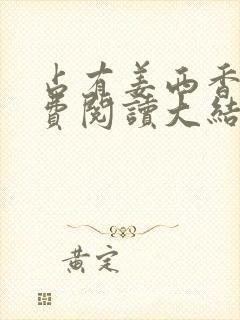 占有姜西香
費閱讀大結
黃定